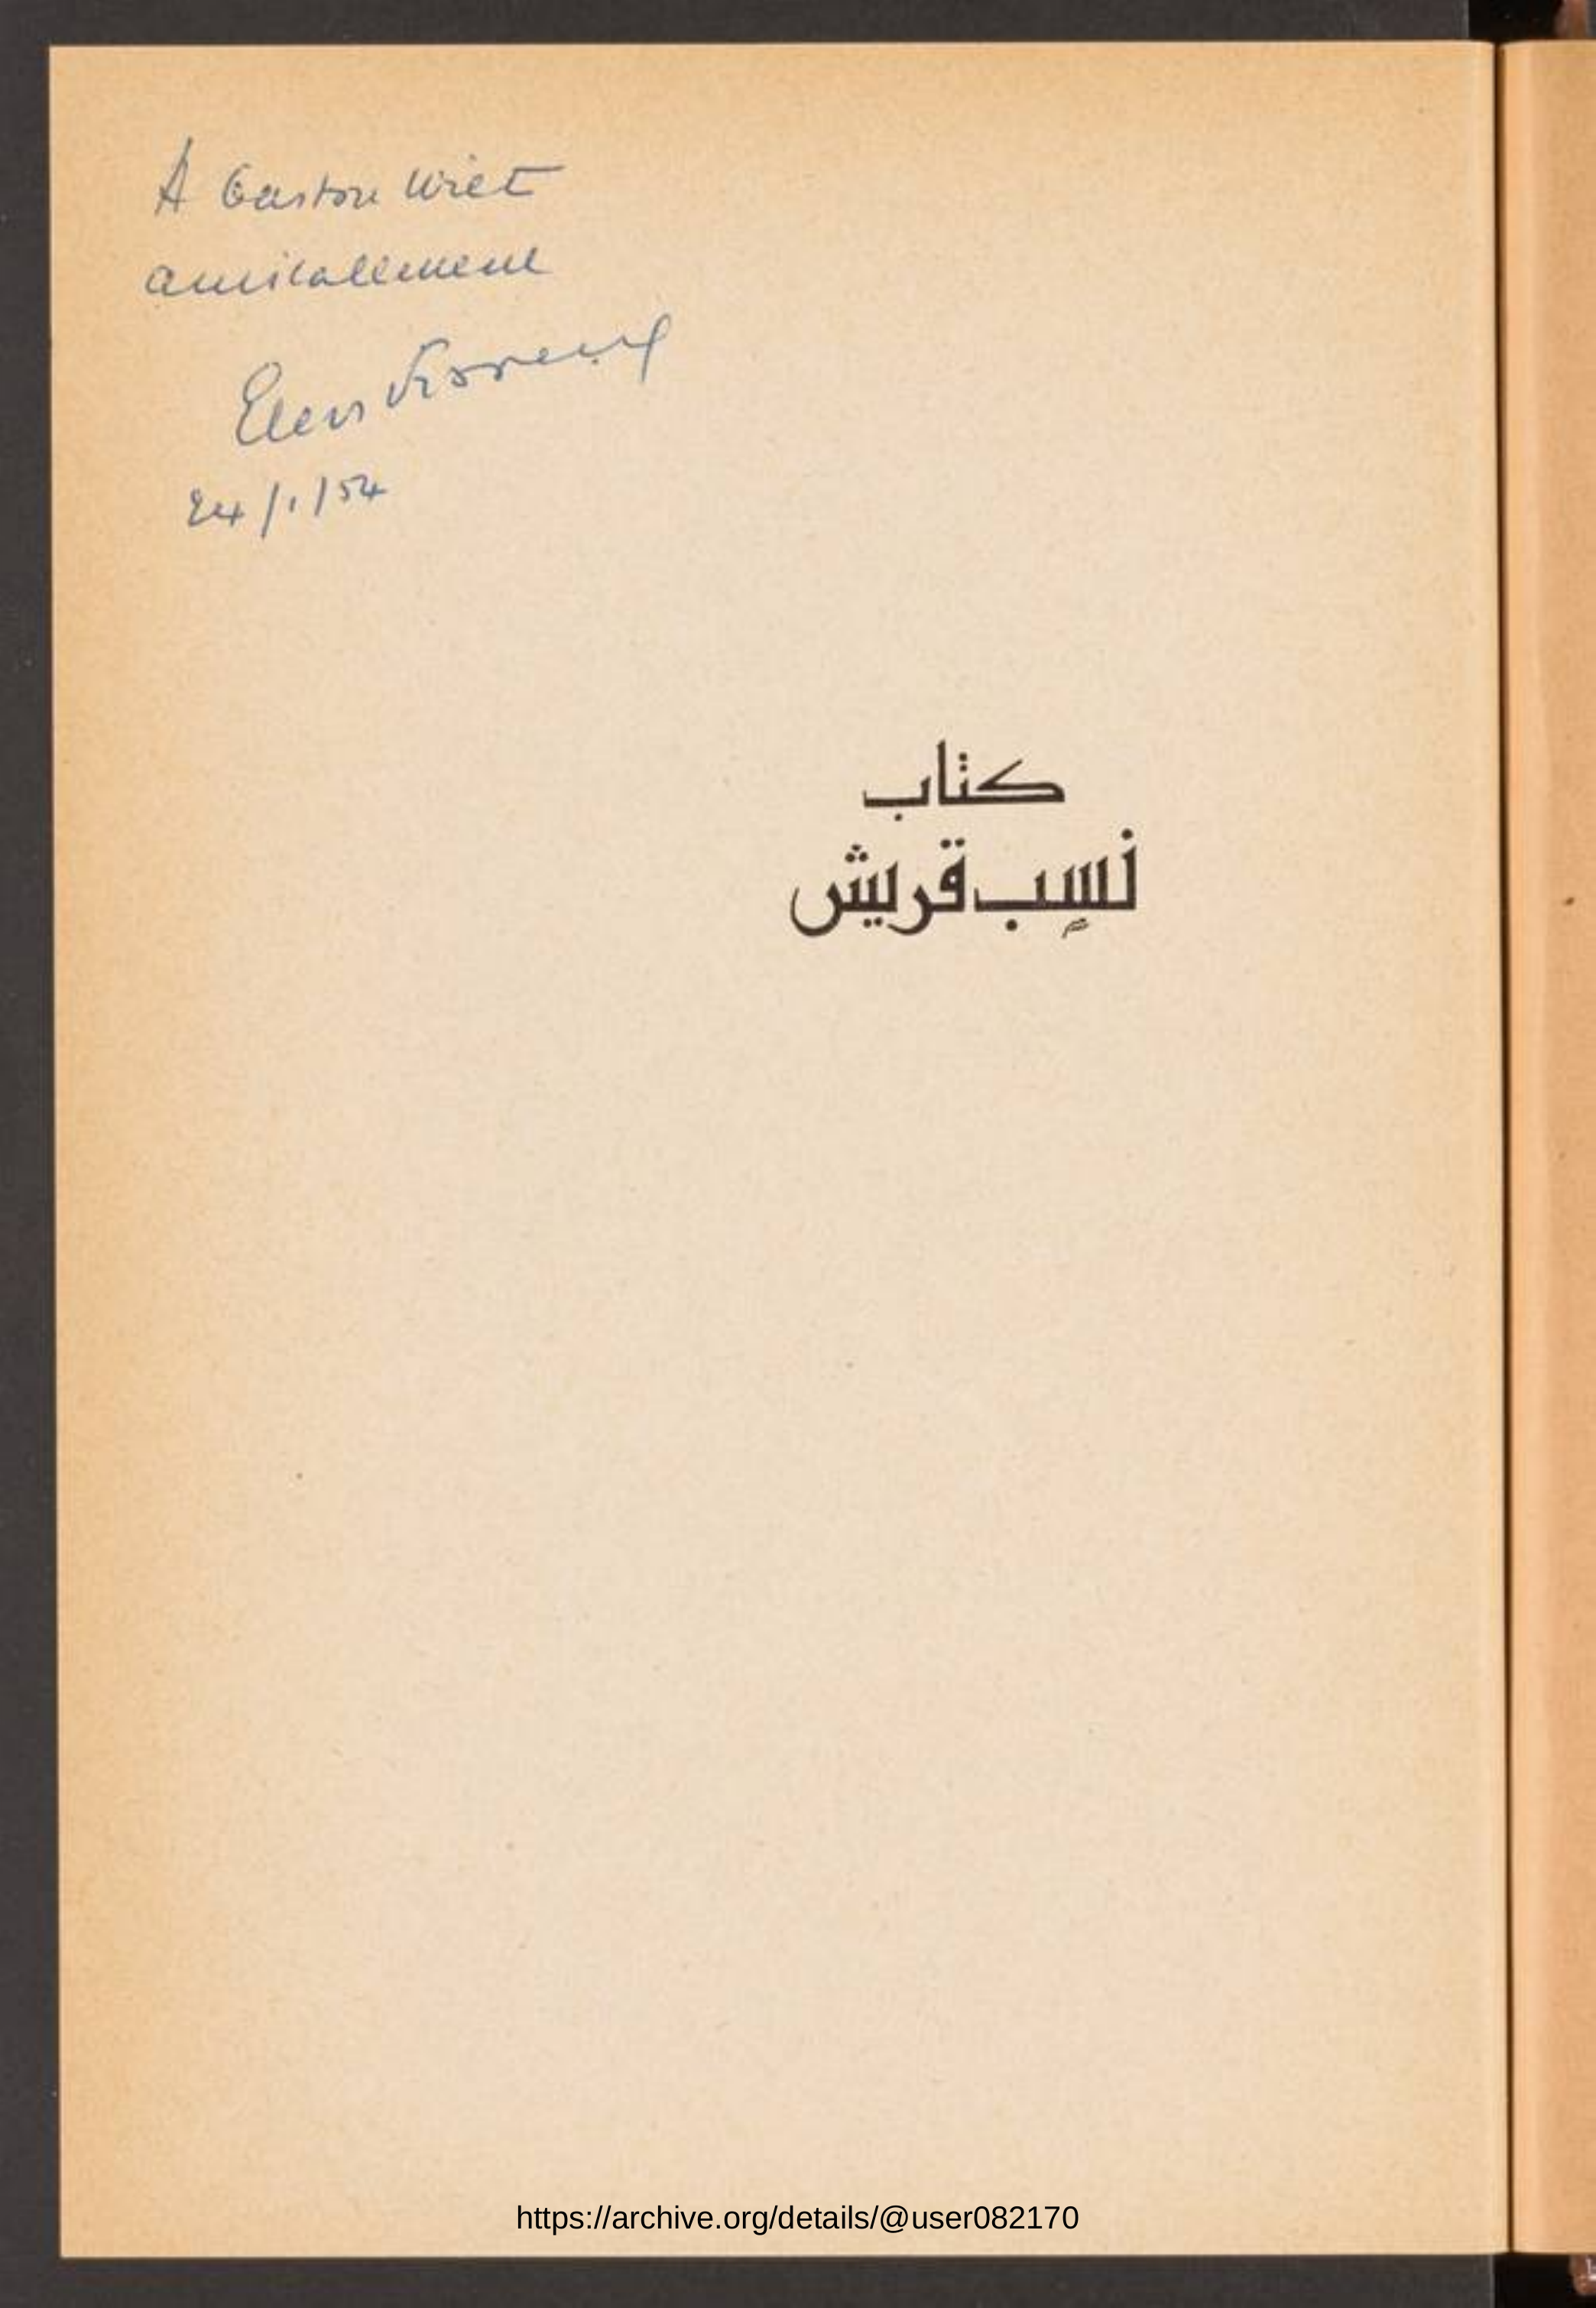 A Gaston Wiet
amicalement
24/1/54
كتاب
نسب قريش
https://archive.org/details/@user082170